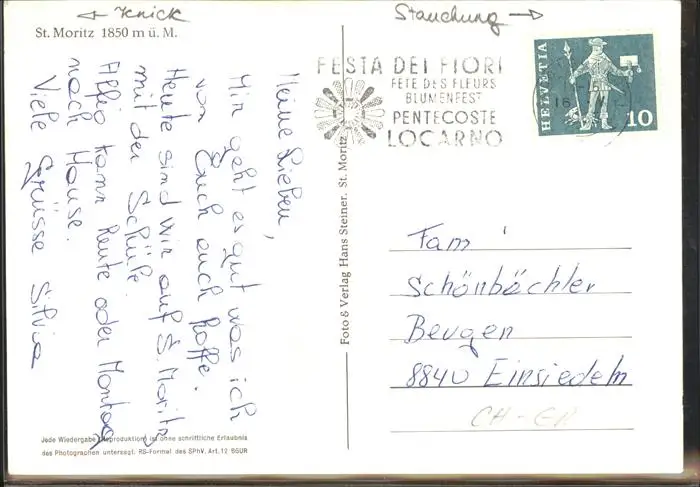 ← Knick
Stauchung →
St. Moritz 1850 m ü. M.
Meine Lieben,
Mir geht es gut was ich
von Euch auch hoffe.
Heute sind wir auf S. Moritz
mit der Schule.
Affio kann heute oder Montag
nach Hause.
Viele Grüsse Silvia
Jede Wiedergabe (Reproduktion) ist ohne schriftliche Erlaubnis
des Photographen untersagt. RS-Formel des SPhV. Art. 12 BGUR
Foto & Verlag Hans Steiner, St. Moritz
FESTA DEI FIORI
FÊTE DES FLEURS
BLUMENFEST
PENTECOSTE
LOCARNO
HELVETIA
10
16
Fam.
Schönbächler
Beugen
8840 Einsiedeln
CH-GR